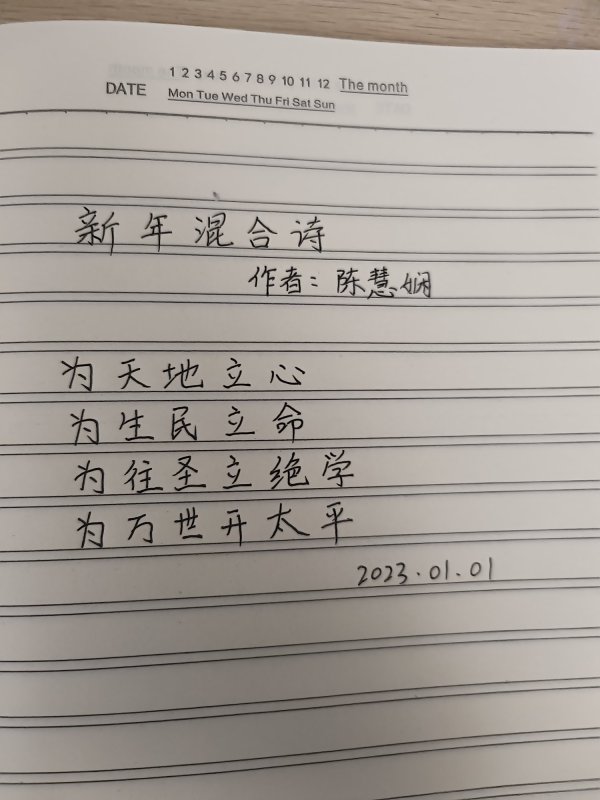 1 2 3 4 5 6 7 8 9 10 11 12 The month
DATE Mon Tue Wed Thu Fri Sat Sun
新年混合诗
作者：陈慧娴
为天地立心
为生民立命
为往圣立绝学
为万世开太平
2023.01.01